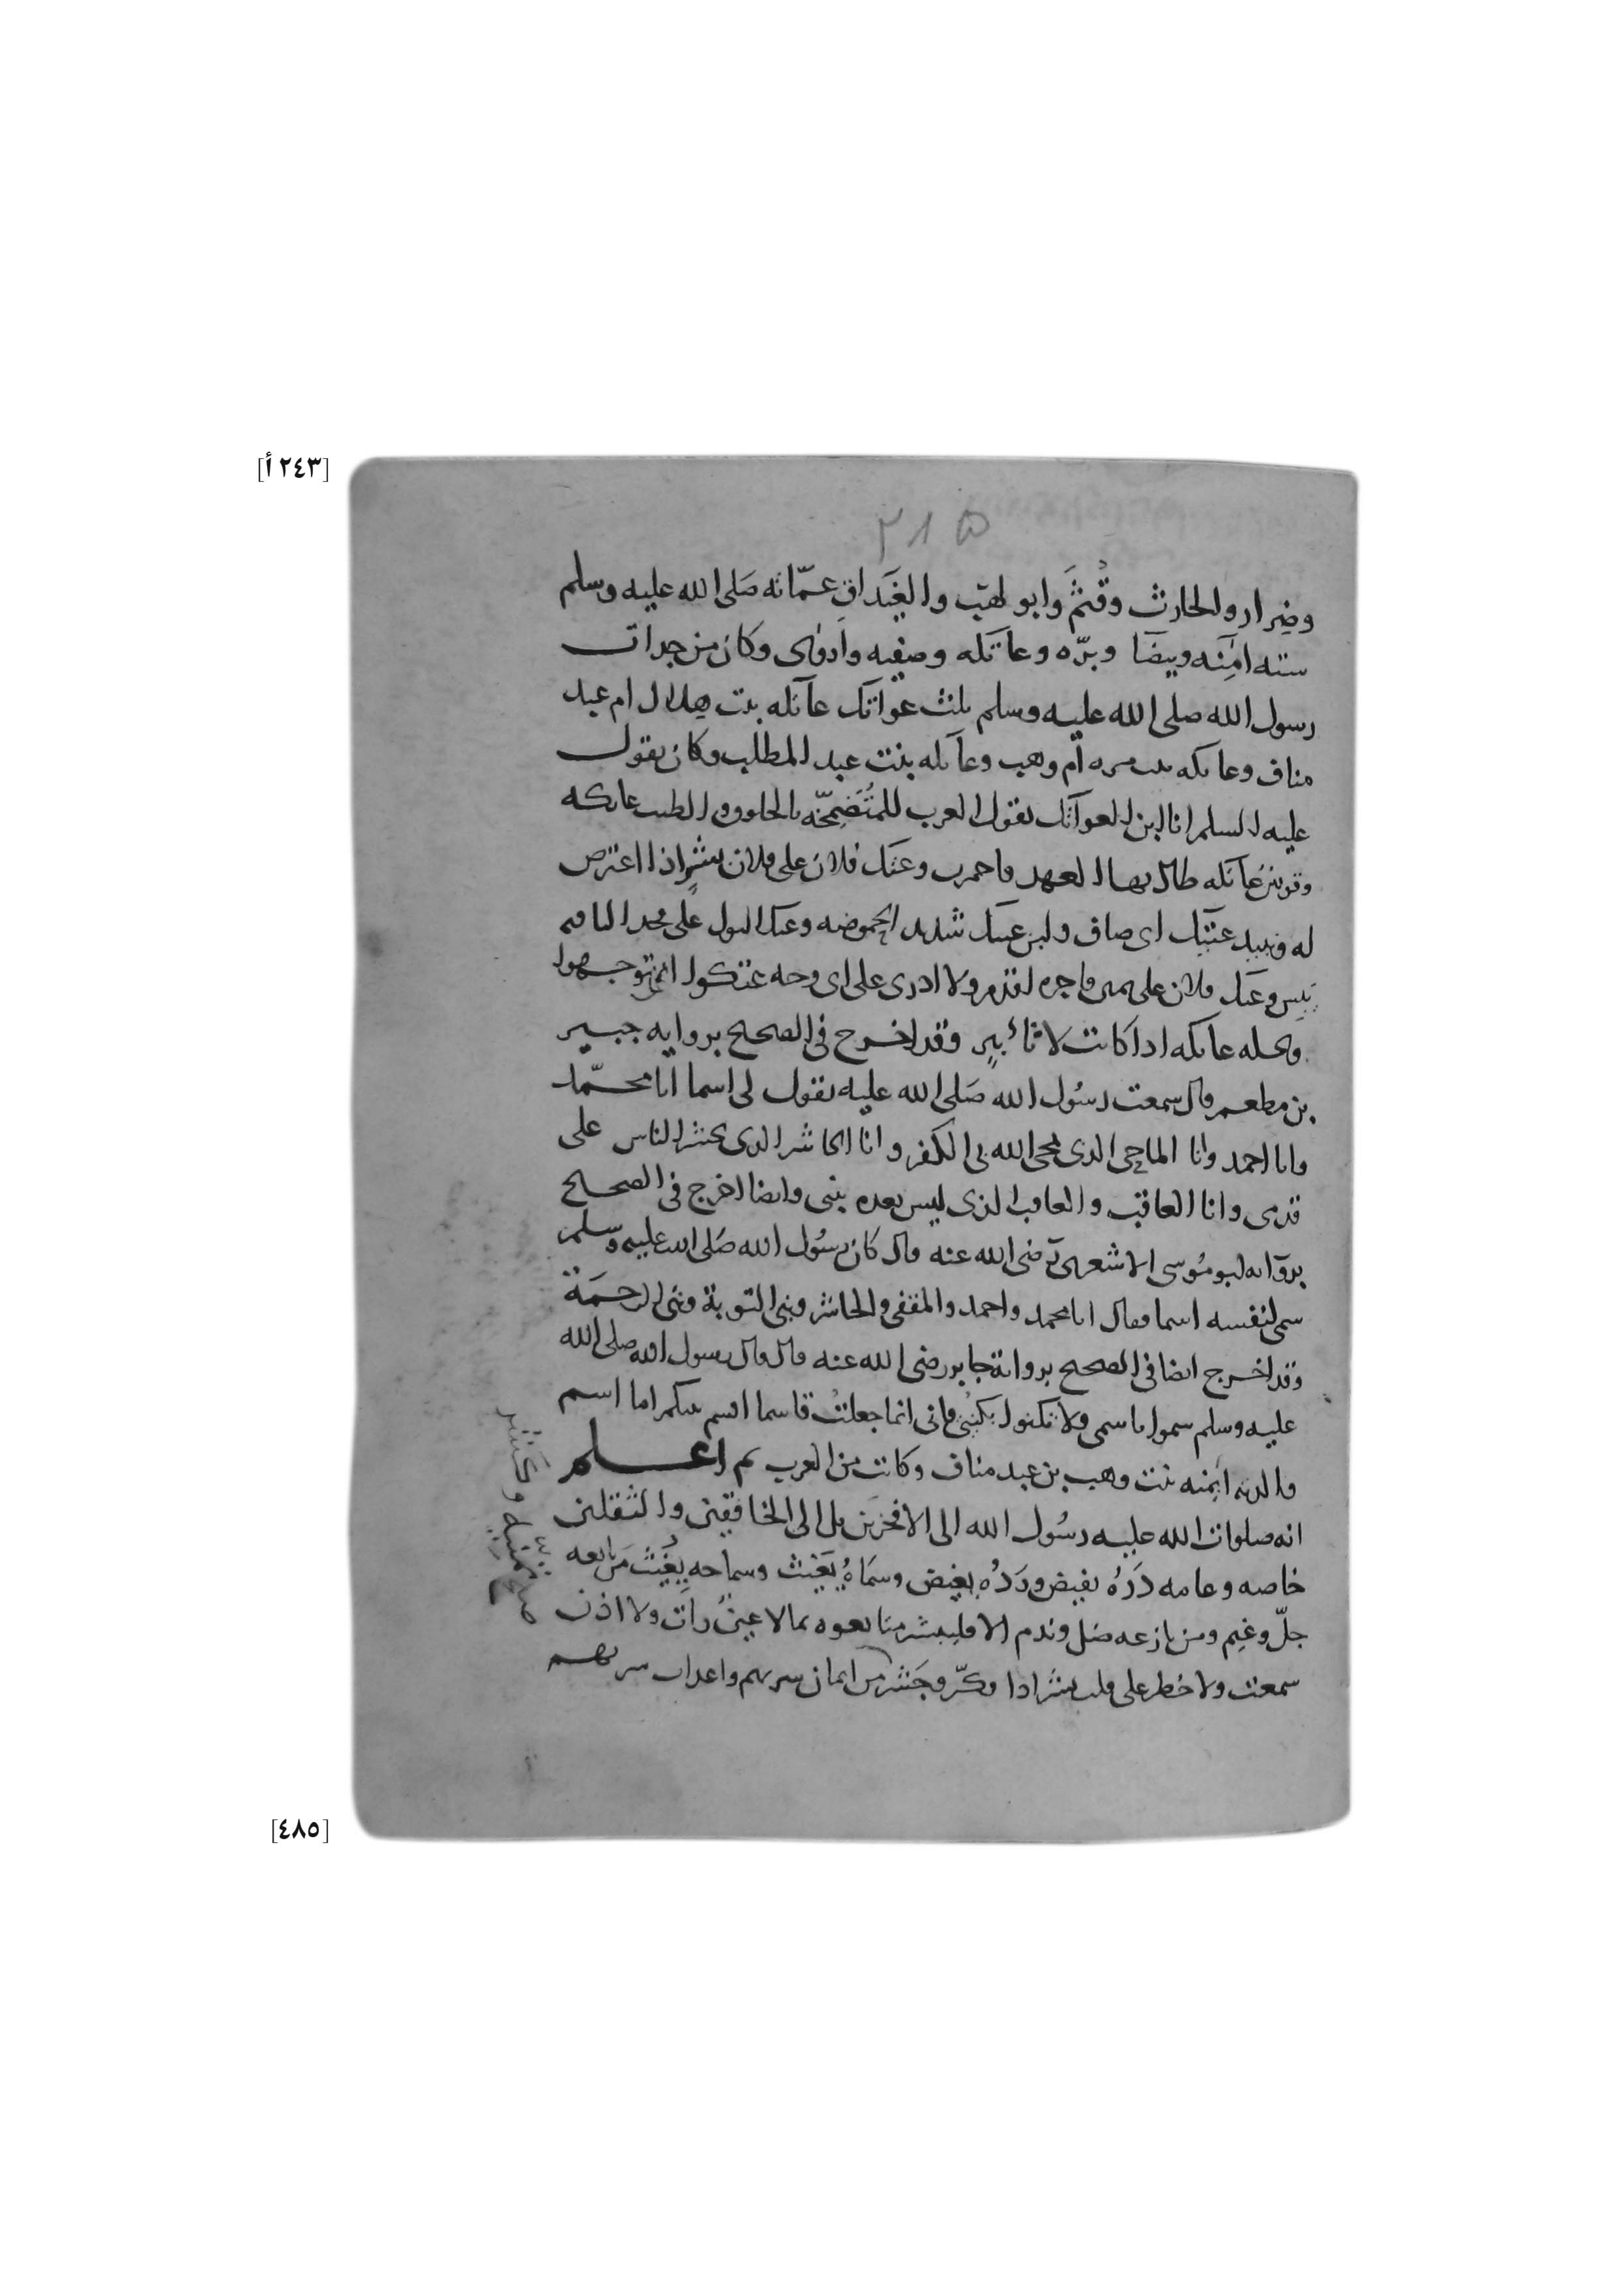 [٢٤٣ أ]
٢١٥
وضرار والحارث وقثم وابو لهب والغيداق عمّاته صَلى الله عليه وسلم
سته امنه وبيضا وبرّه وعاتكه وصفيه واروى وكان من جدات
رسول الله صلى الله عليه وسلم ثلث عواتك عاتكه بنت هلال ام عبد
مناف وعاتكه بنت مره ام وهب وعاتكه بنت عبد المطلب وكان يقول
عليه السلم انا ابن العواتك يقول العرب للمتُضَمِّخه بالخلوق والطيب عاتكه
وقوس عاتكه طال بها العهد فاحمرت وعتك فلان على فلان بشرٍ اذا اعترض
له ونبيذ عتيك اى صاف ولبن عتيك شديد الحموضه وعتك البول على فخذ الناقه
يبس وعتك فلان على يمين فاجره اقدم ولا ادرى على اى وجه عتكوا اى توجهوا
ونخله عاتكه اذا كانت لا تأبير وقد اخرج فى الصحيح بروايه جبير
بن مطعم قال سمعت رسُول الله صَلى الله عليه يقول لى اسما انا محمّد
وانا احمد وانا الماحِى الذى يمحى الله بى الكفر وانا الحاشر الذى يحشر الناس على
قدمى وانا العاقب والعاقب الذى ليس بعده نبى وايضا اخرج فى الصحيح
بروايه ابو مُوسى الاشعرى رضى الله عنه قال كان رسُول الله صَلى الله عليه وسلم
سمى لنفسه اسما فقال انا محمد واحمد والمقفى والحاشر ونبى التوبة ونبى الرحمَة
وقد اخرج ايضا فى الصحيح برواية جابر رضى الله عنه قال قال رسول الله صلى الله
عليه وسلم سموا باسمى ولا تكنوا بكنيتى فانى انما جعلتُ قاسما اقسم بينكم اما اسم
والدته امنه بنت وهب بن عبد مناف وكانت من العرب ثم اعلم
انه صلوات الله عليه رسُول الله الى الافخرين بل الى الخافقين والثقلين
خاصه وعامه دَرّهُ يفيض ورَدّهُ يغيض وسمَاهُ يَغيث وسماحه يُغيث من تابعه
جلّ وغنم ومن نازعه ضل وندم الا فليبشر متابعوه بما لا عينٌ رأت ولا اذن
سمعت ولا خطر على قلب بشر اذا فكّر وحَشر من ايمان سربهم واعذاب
[٤٨٥]